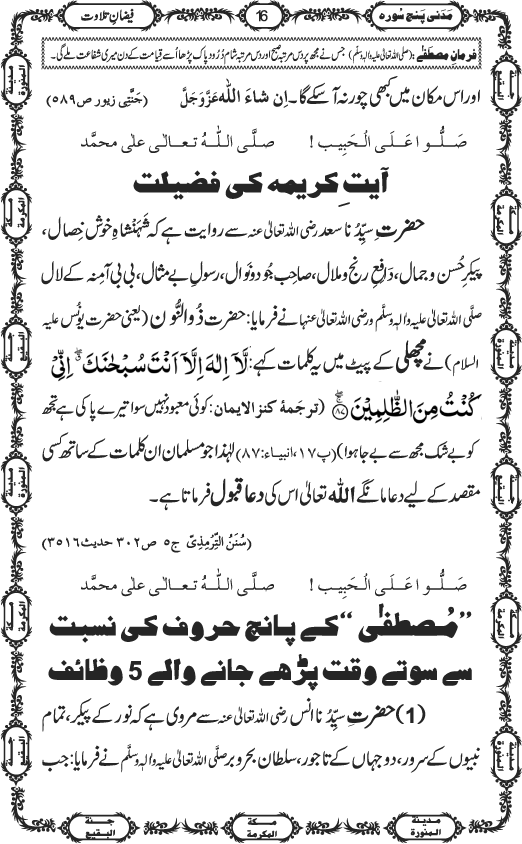 مَدَنی پَنج سُورہ
16
فیضانِ تلاوت
فرمانِ مصطفٰے : (صلی اللہ تعالیٰ علیہ واٰلہٖ وسلّم) جس نے مجھ پر دس مرتبہ صبح اور دس مرتبہ شام دُرود پاک پڑھا اُسے قیامت کے دن میری شفاعت ملے گی۔
اور اس مکان میں کبھی چور نہ آسکے گا۔ اِن شاءَ اللہ عَزَّوَجَلَّ (جنّتی زیور ص۵۸۹)
صَلُّوا عَلَی الْحَبِیب ! صلَّی اللہُ تعالٰی علٰی محمَّد
آیتِ کریمہ کی فضیلت
حضرتِ سیِّدُنا سعد رضی اللہ تعالیٰ عنہ سے روایت ہے کہ شَہَنْشاہِ خوش خِصال،
پیکرِ حُسن و جمال، دافعِ رنج و ملال، صاحبِ جُود و نَوال، رسولِ بے مثال، بی بی آمِنہ کے لال
صلَّی اللہ تعالیٰ علیہ واٰلہٖ وسلَّم و رضی اللہ تعالیٰ عنہا نے فرمایا: حضرت ذُوالنُّون (یعنی حضرت یونُس علیہ
السلام) نے مچھلی کے پیٹ میں یہ کلمات کہے: لَّاۤ اِلٰهَ اِلَّاۤ اَنْتَ سُبْحٰنَكَ ۖۗ اِنِّیْ
كُنْتُ مِنَ الظّٰلِمِیْنَ ۚۖ﴿۸۷﴾ (ترجمۂ کنز الایمان: کوئی معبود نہیں سوا تیرے پاکی ہے تجھ
کو بے شک مجھ سے بے جا ہوا) (پ۱۷، انبیاء: ۸۷) لہٰذا جو مسلمان ان کلمات کے ساتھ کسی
مقصد کے لیے دعا مانگے اللہ تعالیٰ اس کی دعا قبول فرماتا ہے۔
(سُنَنُ التِّرمِذِیّ ج۵ ص۳۰۲ حدیث۳۵۱۶)
صَلُّوا عَلَی الْحَبِیب ! صلَّی اللہُ تعالٰی علٰی محمَّد
”مُصطفٰی“ کے پانچ حروف کی نسبت
سے سوتے وقت پڑھے جانے والے 5 وظائف
(1) حضرتِ سیِّدُنا انس رضی اللہ تعالیٰ عنہ سے مروی ہے کہ نور کے پیکر، تمام
نبیوں کے سرور، دو جہاں کے تاجور، سلطانِ بحر و بر صلَّی اللہ تعالیٰ علیہ واٰلہٖ وسلَّم نے فرمایا: جب
مدینۃ المنورۃ
مکۃ المکرمۃ
جنۃ البقیع